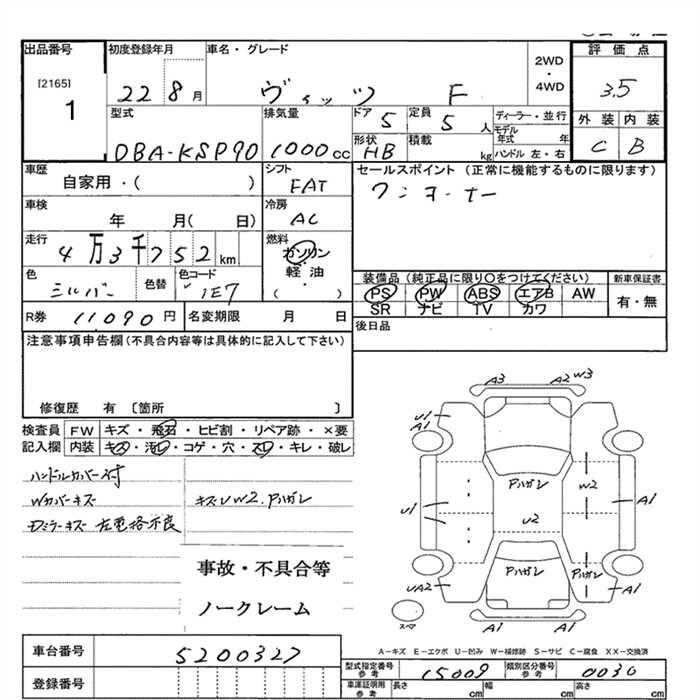 出品番号 初度登録年月 車名・グレード 評価点
[2165] 2WD・4WD
1 22 8月 ヴィッツ F 3.5
型式 排気量 ドア 5 定員 5人 ディーラー・並行 外装 内装
DBA-KSP90 1000cc 形状 HB 積載 kg モデル年式 年 ハンドル 左・右 C B
車歴 シフト セールスポイント (正常に機能するものに限ります)
自家用・( ) FAT ワンオーナー
車検 年 月( 日) 冷房 AC
走行 4万3千752km 燃料 ガソリン
軽油
装備品 (純正品に限り○をつけてください) 新車保証書
色 シルバー 色替 色コード 1E7 ( ・ ) PS PW ABS エアB AW 有・無
SR ナビ TV カワ
R券 11090円 名変期限 月 日 後日品
注意事項申告欄(不具合内容等は具体的に記入して下さい)
修復歴 有 〔箇所 〕
検査員 FW キズ・飛石・ヒビ割・リペア跡・×要
記入欄 内装 キズ・汚レ・コゲ・穴・スレ・キレ・破レ
ハンドルカバー付
Wカバーキズ キズUW2.Pハガレ
Dミラーキズ 左電格不良
事故・不具合等
ノークレーム
A3 A2 W3
U1
A1
Pハガレ W2
U1 U2 A1
UA2 Pハガレ Pハガレ A1
スペア A1 A1
A-キズ E-エクボ U-凹み W-補修跡 S-サビ C-腐食 XX-交換済
車台番号 5200327
型式指定番号 参考 15009 類別区分番号 参考 0030
登録番号 車庫証明用 参考 長さ cm 幅 cm 高さ cm